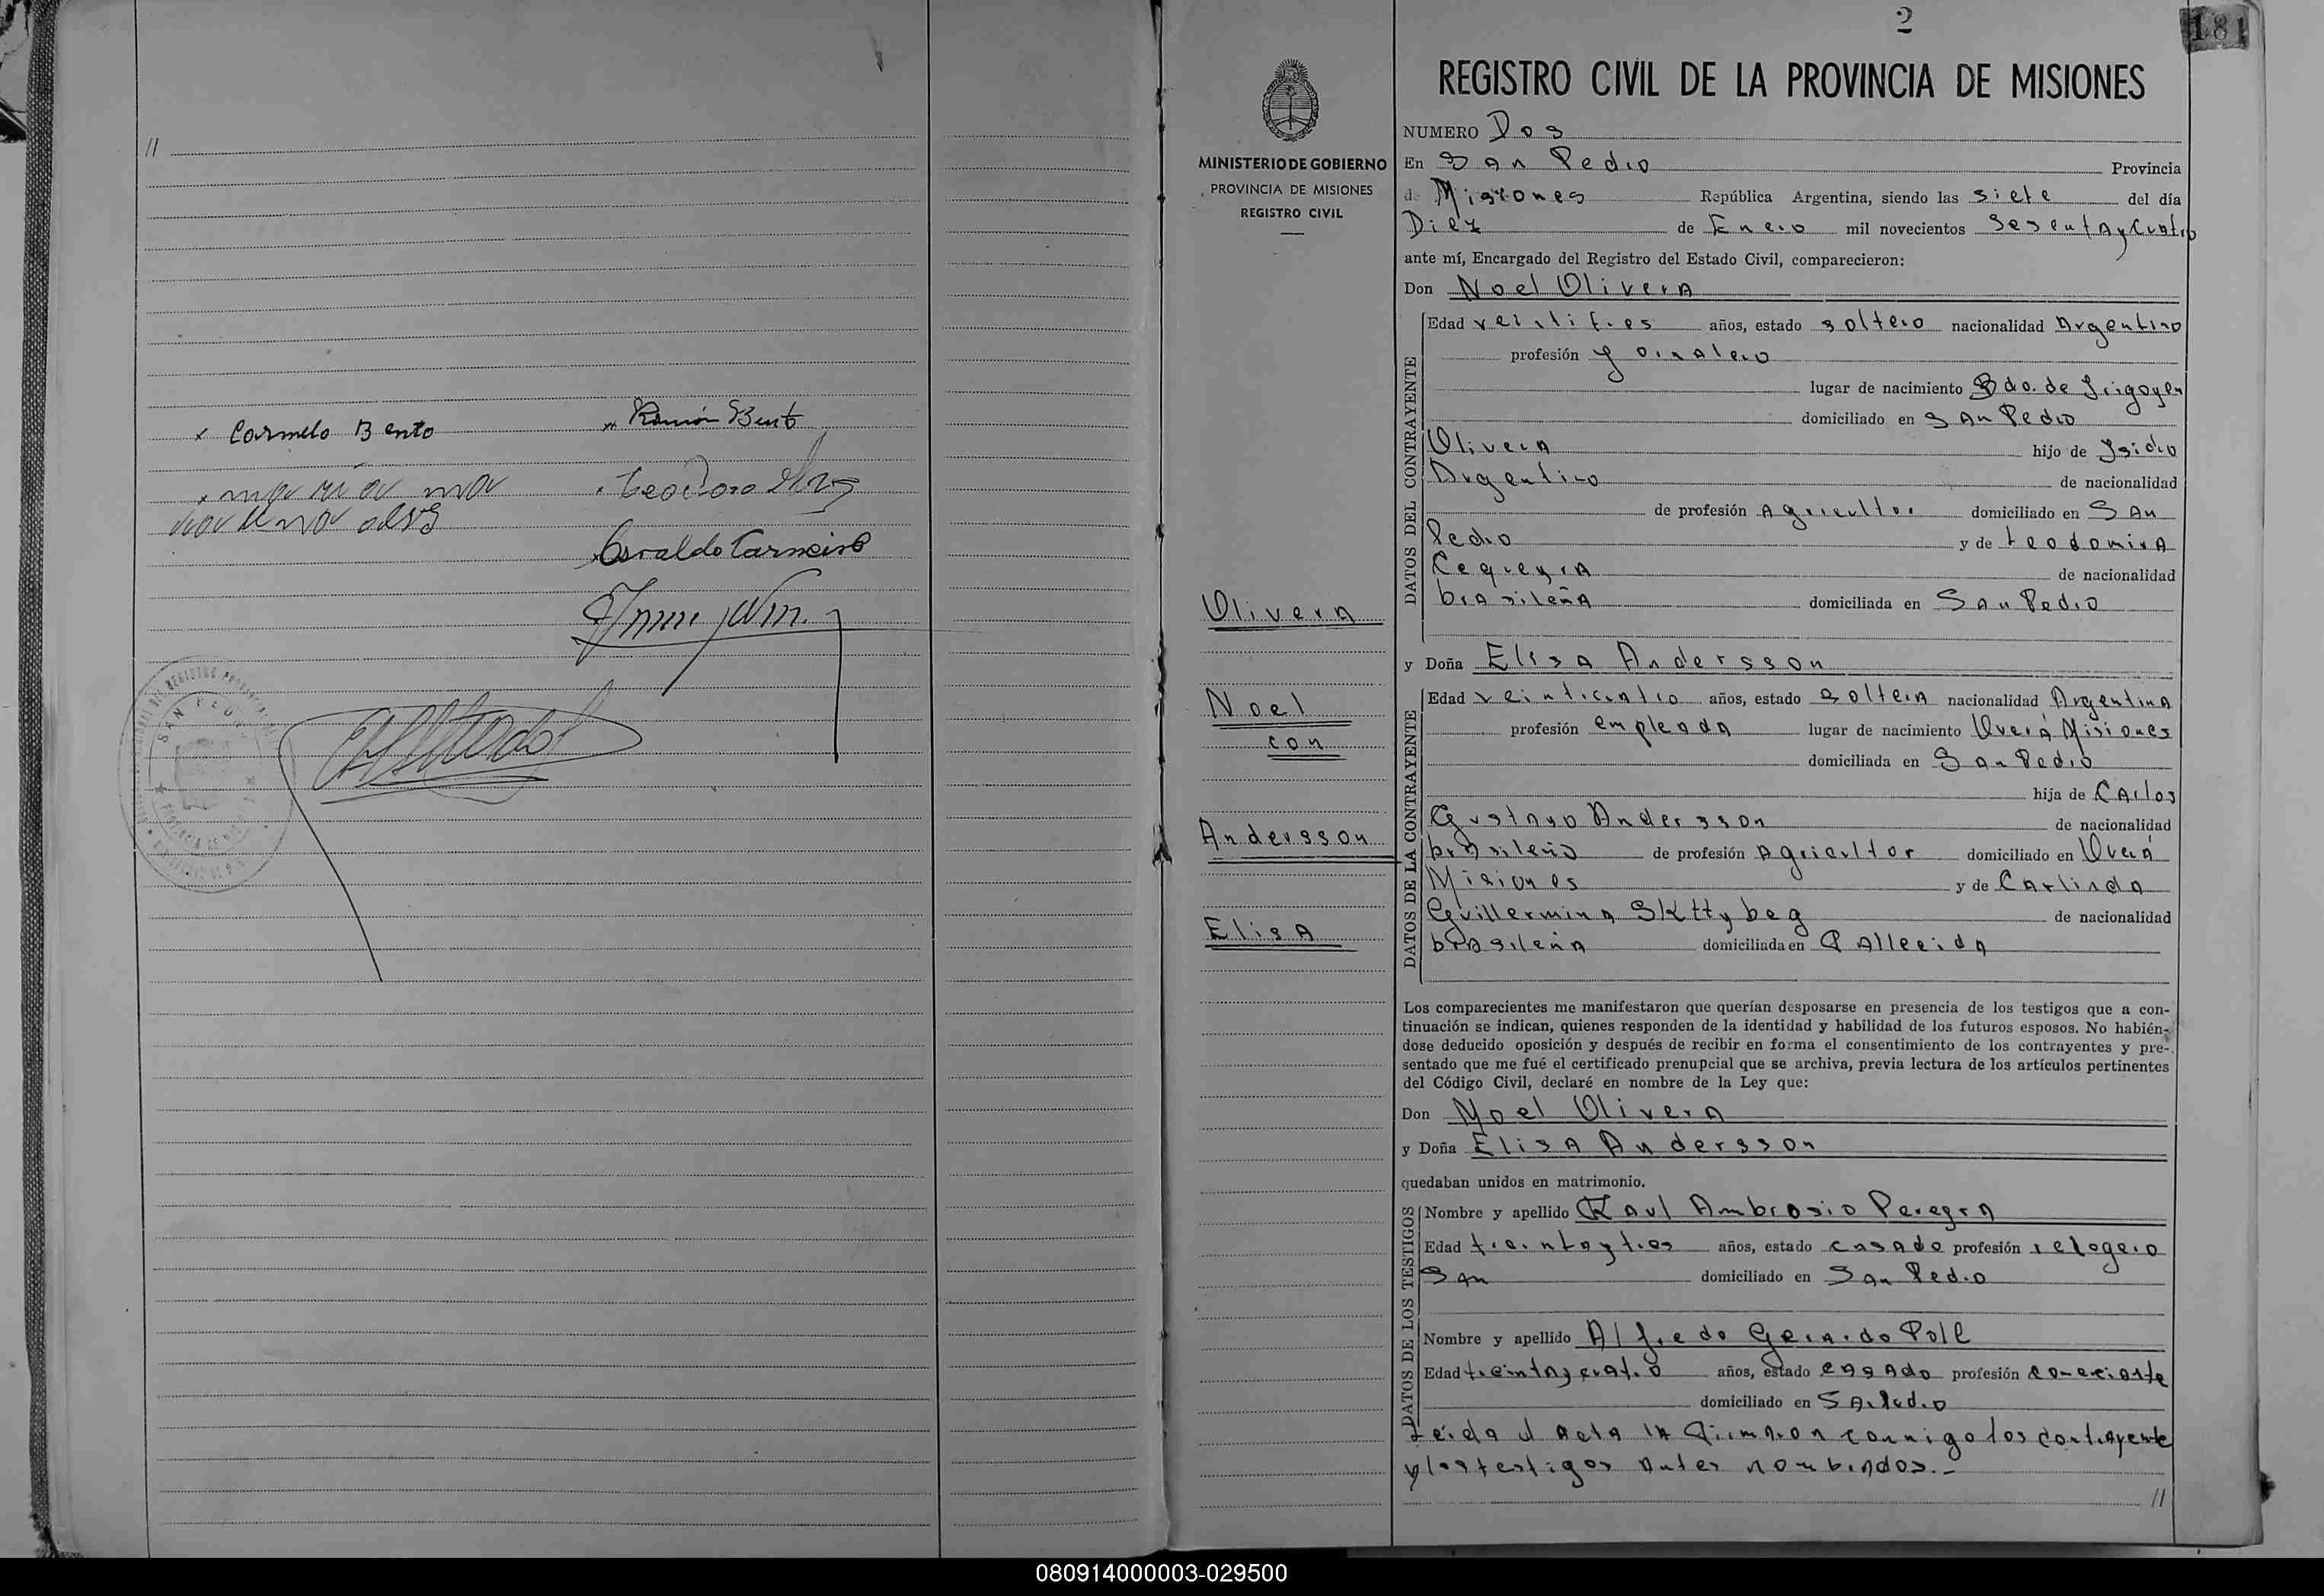 //
x Carmelo Bento
Ramón Bento
Teodoro
Osvaldo Carneiro
SAN PEDRO
2
181
MINISTERIO DE GOBIERNO
PROVINCIA DE MISIONES
REGISTRO CIVIL
Olivera
Noel
con
Andersson
Elisa
REGISTRO CIVIL DE LA PROVINCIA DE MISIONES
NUMERO Dos
En San Pedro Provincia
de Misiones República Argentina, siendo las siete del día
Diez de Enero mil novecientos Sesenta y Cuatro
ante mí, Encargado del Registro del Estado Civil, comparecieron:
Don Noel Olivera
DATOS DEL CONTRAYENTE
Edad veintitres años, estado soltero nacionalidad Argentino
profesión yornalero
lugar de nacimiento Bdo. de Irigoyen
domiciliado en San Pedro
Olivera hijo de Isidro
Argentino de nacionalidad
de profesión Agricultor domiciliado en San
Pedro y de teodomira
de nacionalidad
brasileña domiciliada en San Pedro
y Doña Elisa Andersson
DATOS DE LA CONTRAYENTE
Edad veinticuatro años, estado soltera nacionalidad Argentina
profesión empleada lugar de nacimiento Overá Misiones
domiciliada en San Pedro
hija de Carlos
Gustavo Andersson de nacionalidad
brasileño de profesión Agricultor domiciliado en Overá
Misiones y de Carlinda
Guillermina Skttybeg de nacionalidad
brasileña domiciliada en fallecida
Los comparecientes me manifestaron que querían desposarse en presencia de los testigos que a con-
tinuación se indican, quienes responden de la identidad y habilidad de los futuros esposos. No habién-
dose deducido oposición y después de recibir en forma el consentimiento de los contrayentes y pre-
sentado que me fué el certificado prenupcial que se archiva, previa lectura de los artículos pertinentes
del Código Civil, declaré en nombre de la Ley que:
Don Noel Olivera
y Doña Elisa Andersson
quedaban unidos en matrimonio.
DATOS DE LOS TESTIGOS
Nombre y apellido Raul Ambrosio Peregra
Edad treinta y tres años, estado casado profesión relogero
San domiciliado en San Pedro
Nombre y apellido Alfredo Gerardo Poll
Edad treinta y cuatro años, estado casado profesión comeciante
domiciliado en San Pedro
Leida el Acta la firmaron conmigo los contrayente
y los testigos antes nombrados.-
//
080914000003-029500